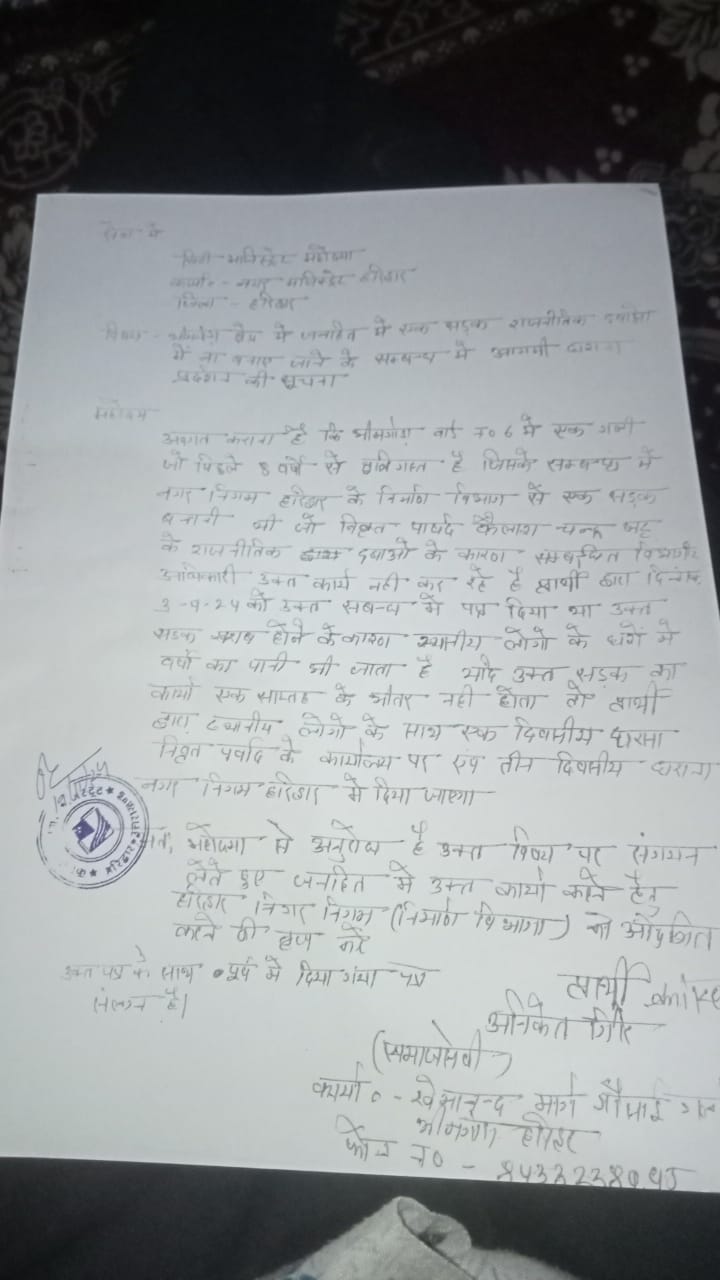 सेवा में
सिटी मजिस्ट्रेट महोदया
कार्या०- नगर मजिस्ट्रेट हरिद्वार
जिला - हरिद्वार
विषय - क्षेत्र में जनहित में एक सड़क राजनीतिक
में ना बनाए जाने के सम्बन्ध में आगामी धरना
प्रदर्शन की सूचना
महोदय
अवगत कराना है कि भीमगोडा वार्ड न० 6 में एक गली
जो पिछले 8 वर्षो से है जिसके सम्बन्ध में
नगर निगम हरिद्वार के निर्माण विभाग से एक सड़क
बनानी थी जो पार्षद कैलाश चन्द्र भट्ट
के राजनीतिक दवाओ के कारण सम्बन्धित
अधिकारी उक्त कार्य नही कर रहे है प्रार्थी द्वारा दिनांक
3-9-24 को उक्त सबन्ध में पत्र दिया था उक्त
सड़क खराब होने के कारण स्थानीय लोगो के घरों में
वर्षा का पानी भी जाता है यदि उक्त सड़क का
कार्या एक साप्ताह के भीतर नही होता तो प्रार्थी
द्वारा स्थानीय लोगो के साथ एक दिवसीय धरना
के कार्यालय पर एवं तीन दिवसीय धरना
नगर निगम हरिद्वार में दिया जाएगा
अतः महोदया से अनुरोध है उक्त विषय पर
लेते हुए जनहित में उक्त कार्या करने हेतु
हरिद्वार निगम (निर्माण विभाग) को
करने की कृपा करें
उक्त पत्र के साथ पूर्व में दिया गया पत्र
संलग्न है।
प्रार्थी
अनिकेत गिरि
(समाजसेवी)
कार्या० - मार्ग
भीमगोडा हरिद्वार
फोन न० -